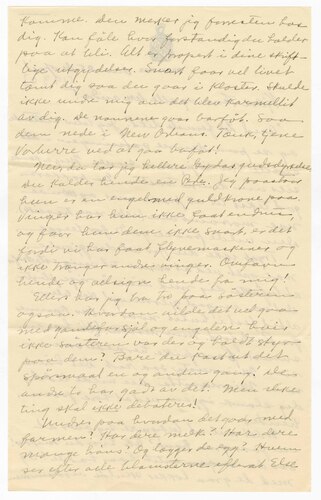 komme. Den merker jeg forresten hos
dig. Kan føle hvor forstandig du holder
paa at bli. Alt er propert i dine skrift-
lige utgydelser. Snart faar vel livet
tømt dig saa du gaar i kloster. Skulde
ikke undre mig om det blev karmelit
av dig. De nonnene gaar barføt. Som
dem nede i New Orleans. Tænk, tjene
Vorherre ved at gaa barføt!
Nei da tar jeg hellere
Du kalder hende en Jeg paastaar
hun er en engel med guldkrone paa.
Vinger har hun ikke faat endnu,
og faar hun dem ikke snart, er det
fordi vi har faat flyvemaskiner og
ikke trænger andre vinger. Omfavn
hende og velsign hende fra mig!
Ellers har jeg bra tro paa søsteren
ogsaa. Hvordan vilde det vel gaa
med og englene hvis
ikke søsteren var der og holdt styr
paa dem? Bare du kast ut det
spörsmaal en og anden gang! De
andre har godt av det. Men slike
ting skal ikke debateres!
Undres paa hvordan det gaar med
farmen! Har dere melk? Har dere
mange høns? Og lægger de egg? Hvem
ser efter alle blomsterne efterat Else